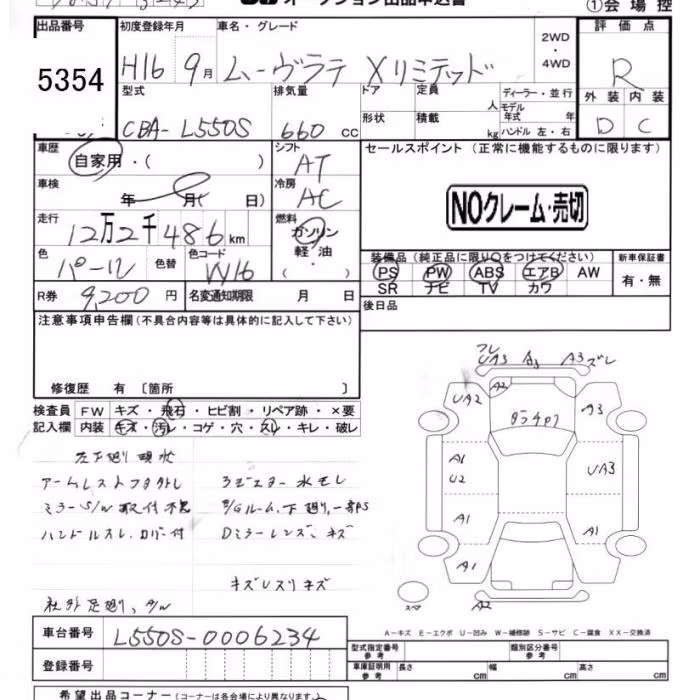 オークション出品申込書
①会場控
出品番号 初度登録年月 車名・グレード 2WD・4WD 評価点
5354 H16 9月 ムーヴラテ Xリミテッド R
型式 排気量 ドア 定員 人 ディーラー・並行 外装 内装
CBA-L550S 660 cc 形状 積載 kg モデル年式 年 ハンドル 左・右 D C
車歴 自家用・( ) シフト AT セールスポイント (正常に機能するものに限ります)
車検 年 月( 日) 冷房 AC NOクレーム・売切
走行 12万2千486km 燃料 ガソリン 軽油 ・( )
装備品 (純正品に限り○をつけてください) 新車保証書
色 パール 色替 色コード W16 PS PW ABS エアB AW 有・無
SR ナビ TV カワ
R券 9,200円 名変通知期限 月 日
後日品
注意事項申告欄 (不具合内容等は具体的に記入して下さい)
修復歴 有 〔箇所 〕
検査員 FW キズ・飛石・ヒビ割・リペア跡・×要
記入欄 内装 キズ・汚レ・コゲ・穴・スレ・キレ・破レ
左下廻り現状
アームレストフタクトレ ラジエター水モレ
ミラーS/W取付不良 E/Gルーム、下廻り、一部PS
ハンドルスレ、カバー付 Dミラーレンズ、キズ
キズUスリキズ
社外足廻り、A/W
フレ
UA3 A3 A3ズレ
UA2 A2 A3
A1 UA3
U2
A1 A1
A1
スペア A2
A-キズ E-エクボ U-凹み W-補修跡 S-サビ C-腐食 XX-交換済
車台番号 L550S-0006234 型式指定番号 参考 類別区分番号 参考
登録番号 車庫証明用 参考 長さ cm 幅 cm 高さ cm
希望出品コーナー (コーナーは各会場により異なります。)